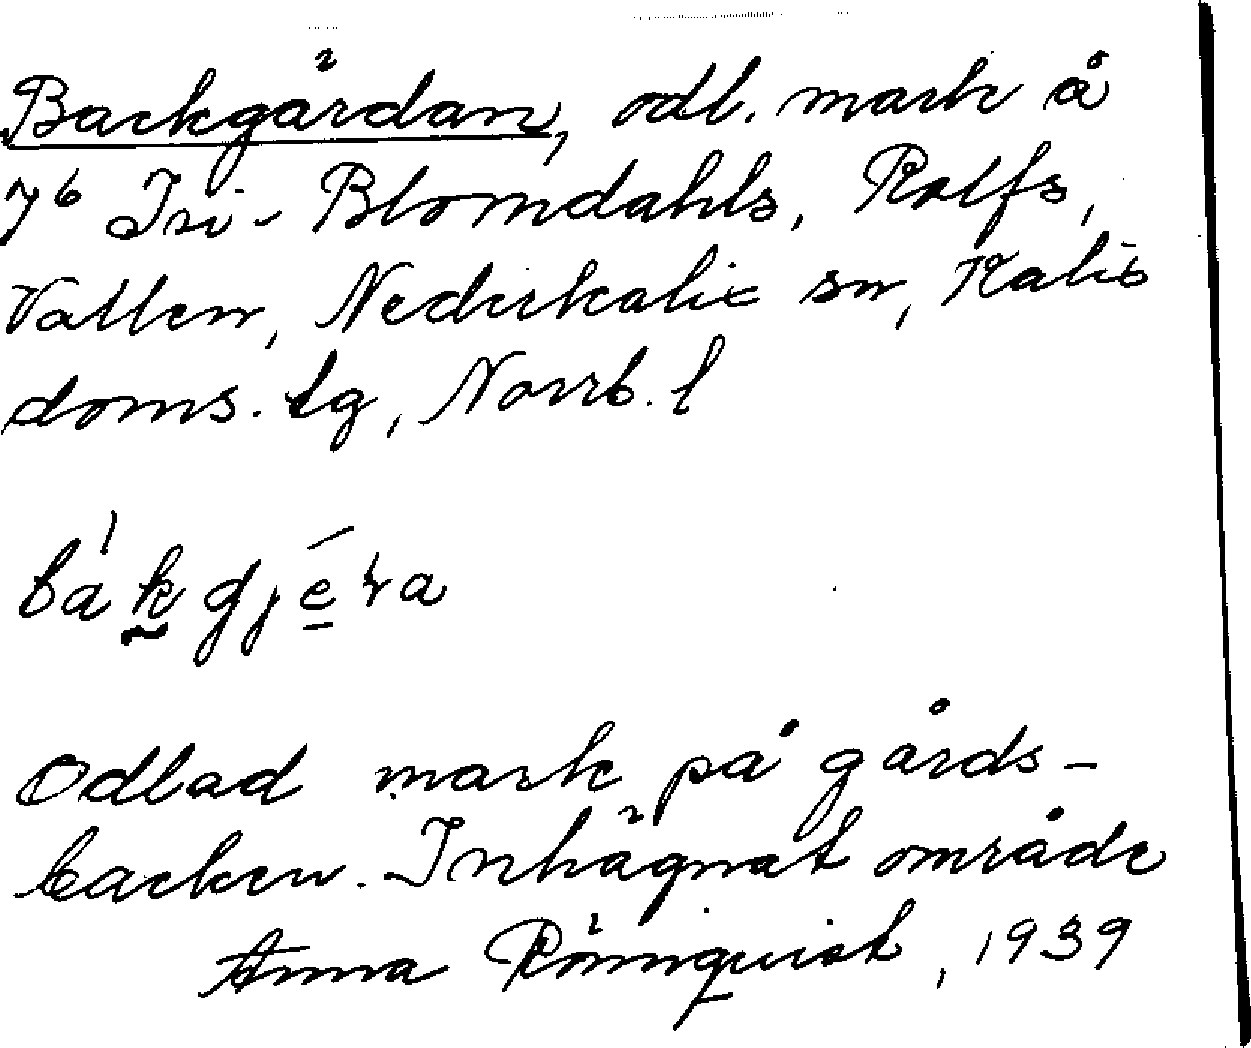 Backgärdan, odl. mark å
7⁶ Isi- Blomdahls, Rolfs,
Vallen, Nederkalix sn, Kalix
doms. lg, Norrb. l
bákgjéra
Odlad mark på gårds-
backen. Inhägnat område
Anna Rönnquist, 1939